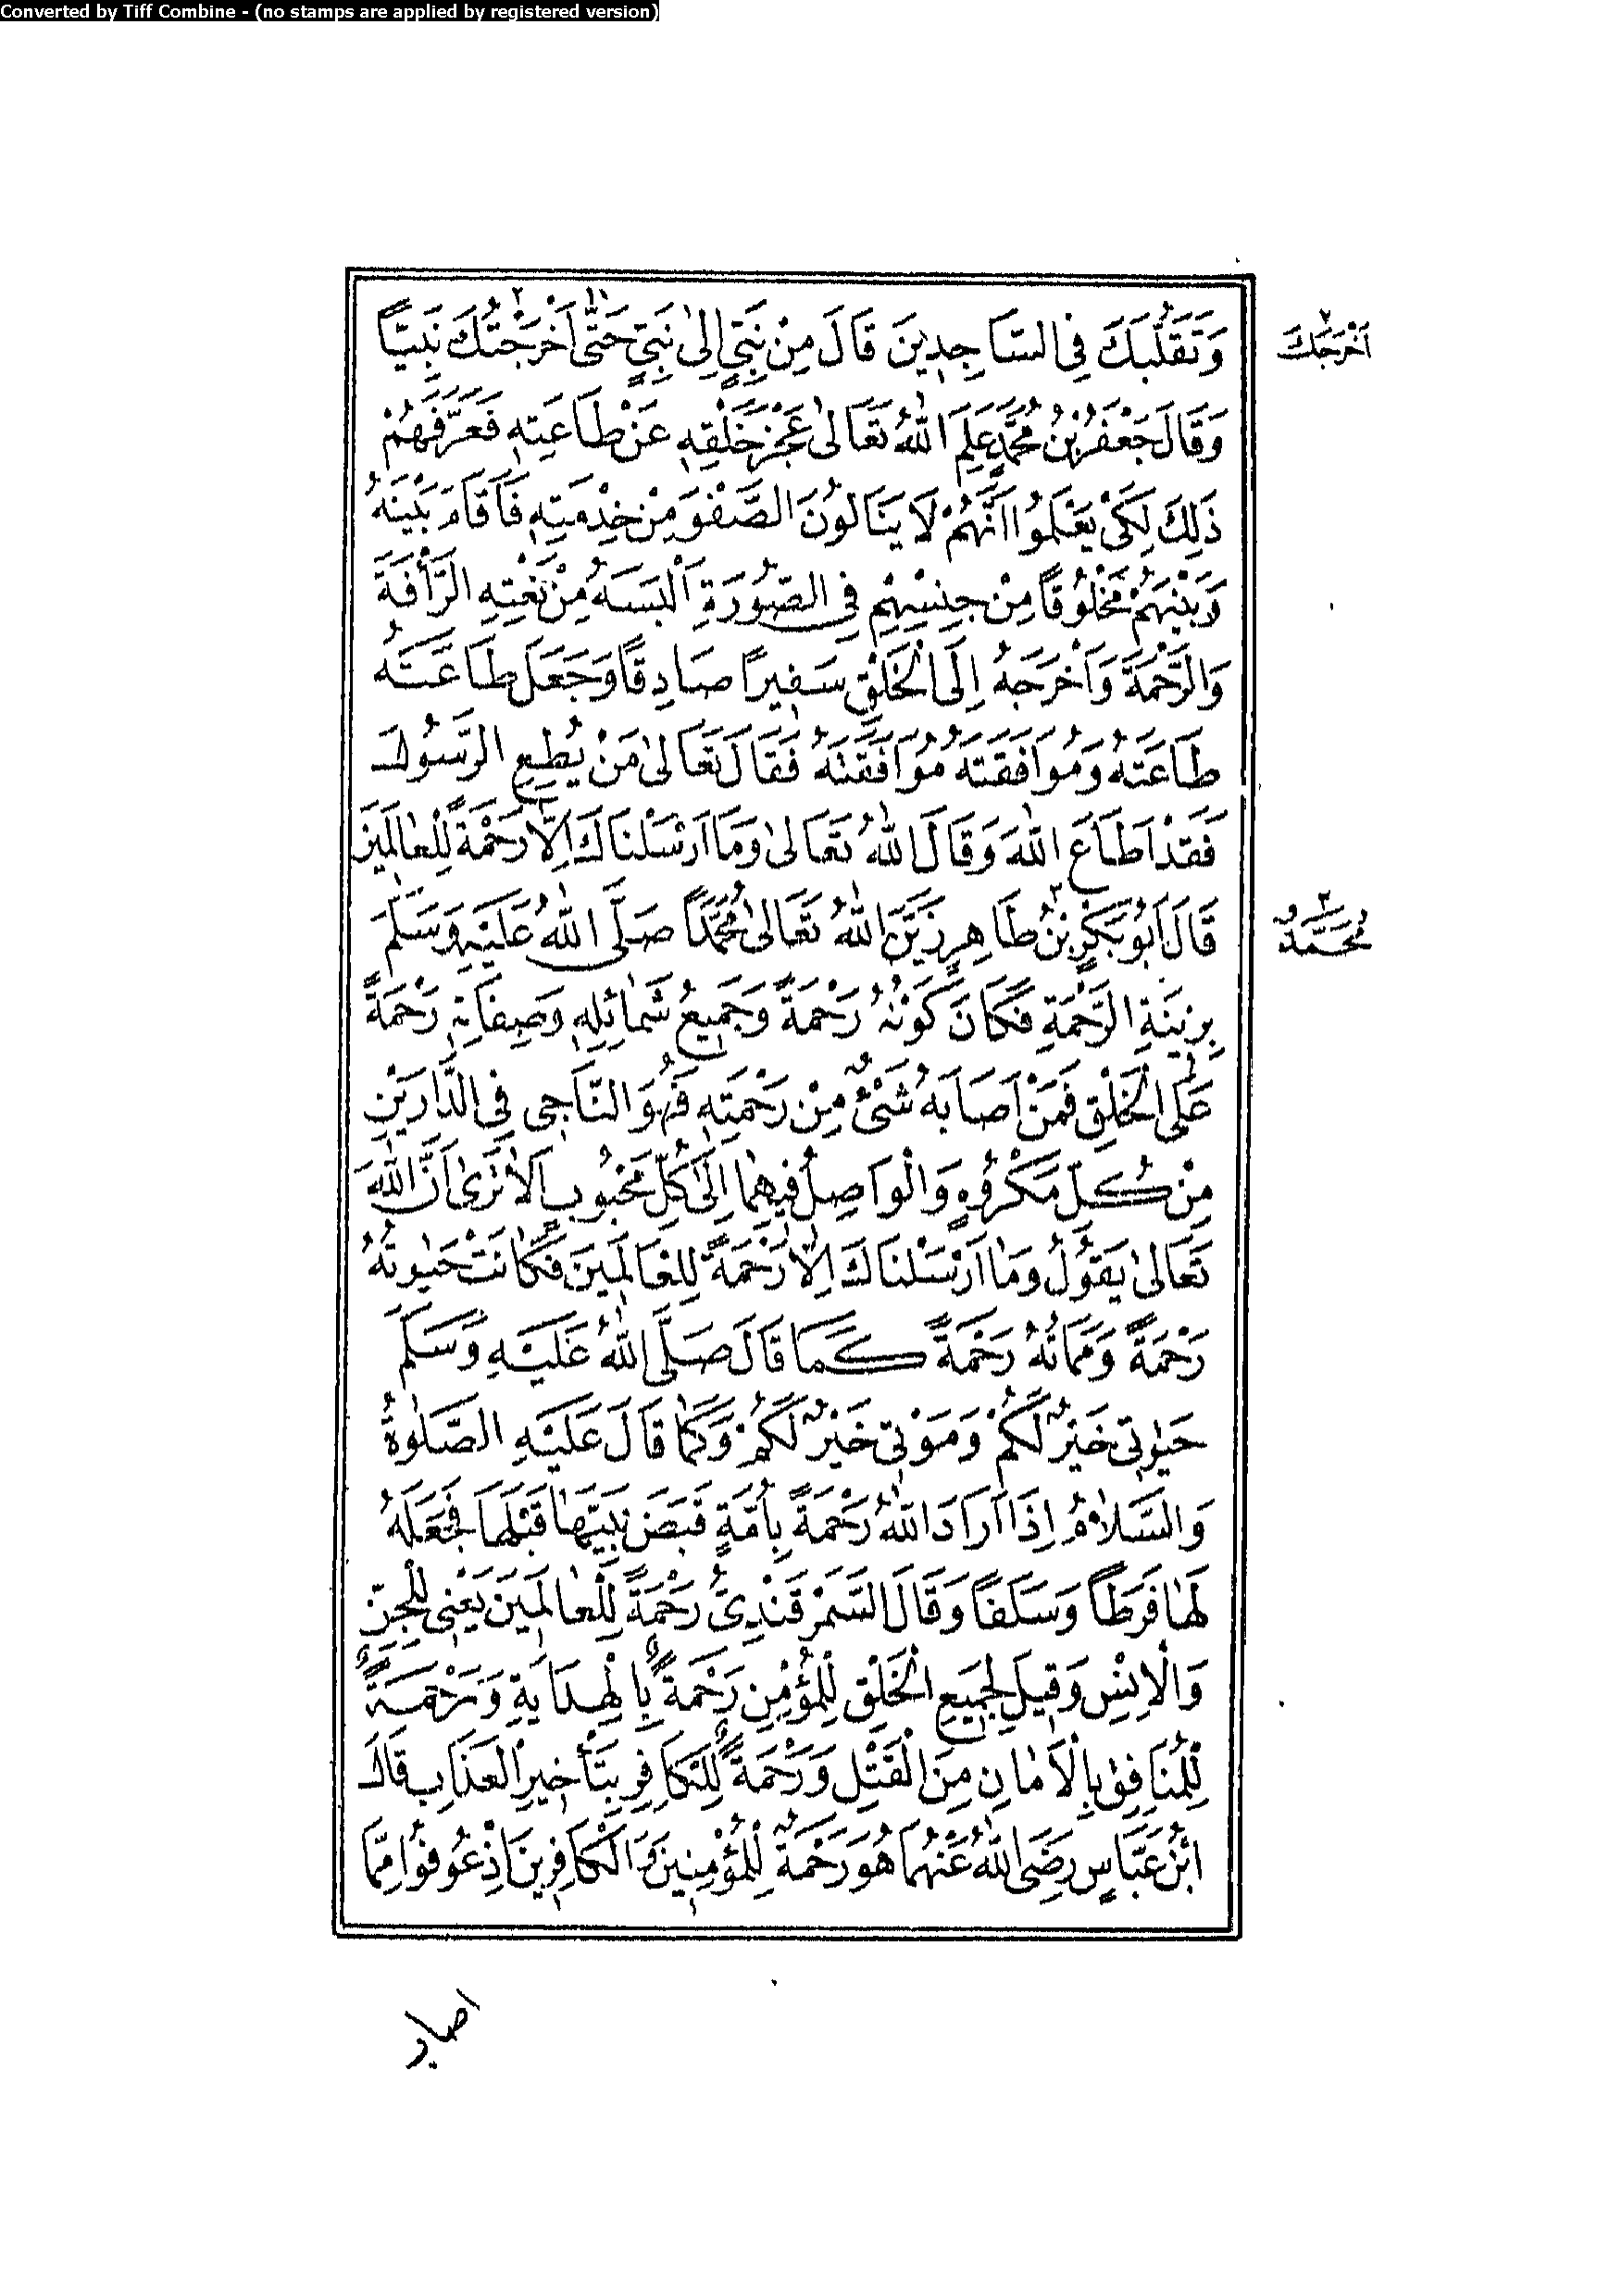 Converted by Tiff Combine - (no stamps are applied by registered version)
وَتَقَلُّبَكَ فِي السَّاجِدِينَ قَالَ مِنْ نَبِيٍّ إِلَىٰ نَبِيٍّ حَتَّىٰ أَخْرَجْتُكَ نَبِيًّا
أَخْرَجَكَ
وَقَالَ جَعْفَرُ بْنُ مُحَمَّدٍ عَلِمَ اللّٰهُ تَعَالَىٰ عَجْزَ خَلْقِهِ عَنْ طَاعَتِهِ فَعَرَّفَهُمْ
ذَلِكَ لِكَيْ يَعْلَمُوا أَنَّهُمْ لَا يَنَالُونَ الصَّفْوَ مِنْ خِدْمَتِهِ فَأَقَامَ بَيْنَهُ
وَبَيْنَهُمْ مَخْلُوقًا مِنْ جِنْسِهِمْ فِي الصُّورَةِ أَلْبَسَهُ مِنْ نَعْتِهِ الرَّأْفَةَ
وَالرَّحْمَةَ وَأَخْرَجَهُ إِلَى الْخَلْقِ سَفِيرًا صَادِقًا وَجَعَلَ طَاعَتَهُ
طَاعَتَهُ وَمُوَافَقَتَهُ مُوَافَقَتَهُ فَقَالَ تَعَالَىٰ مَنْ يُطِعِ الرَّسُولَ
فَقَدْ أَطَاعَ اللّٰهَ وَقَالَ اللّٰهُ تَعَالَىٰ وَمَا أَرْسَلْنَاكَ إِلَّا رَحْمَةً لِلْعَالَمِينَ
قَالَ أَبُو بَكْرِ بْنُ طَاهِرٍ زَيَّنَ اللّٰهُ تَعَالَىٰ مُحَمَّدًا صَلَّى اللّٰهُ عَلَيْهِ وَسَلَّمَ
مُحَمَّدُ
بِزِينَةِ الرَّحْمَةِ فَكَانَ كَوْنُهُ رَحْمَةً وَجَمِيعُ شَمَائِلِهِ وَصِفَاتِهِ رَحْمَةً
عَلَى الْخَلْقِ فَمَنْ أَصَابَهُ شَيْءٌ مِنْ رَحْمَتِهِ فَهُوَ النَّاجِي فِي الدَّارَيْنِ
مِنْ كُلِّ مَكْرُوهٍ وَالْوَاصِلُ فِيهِمَا إِلَىٰ كُلِّ مَحْبُوبٍ أَلَا تَرَىٰ أَنَّ اللّٰهَ
تَعَالَىٰ يَقُولُ وَمَا أَرْسَلْنَاكَ إِلَّا رَحْمَةً لِلْعَالَمِينَ فَكَانَتْ حَيٰوتُهُ
رَحْمَةً وَمَمَاتُهُ رَحْمَةً كَمَا قَالَ صَلَّى اللّٰهُ عَلَيْهِ وَسَلَّمَ
حَيٰوتِي خَيْرٌ لَكُمْ وَمَوْتِي خَيْرٌ لَكُمْ وَكَمَا قَالَ عَلَيْهِ الصَّلٰوةُ
وَالسَّلَامُ إِذَا أَرَادَ اللّٰهُ رَحْمَةً بِأُمَّةٍ قَبَضَ نَبِيَّهَا قَبْلَهَا فَجَعَلَهُ
لَهَا فَرَطًا وَسَلَفًا وَقَالَ السَّمَرْقَنْدِيُّ رَحْمَةً لِلْعَالَمِينَ يَعْنِي لِلْجِنِّ
وَالْإِنْسِ وَقِيلَ لِجَمِيعِ الْخَلْقِ لِلْمُؤْمِنِ رَحْمَةً بِالْهِدَايَةِ وَرَحْمَةً
لِلْمُنَافِقِ بِالْأَمَانِ مِنَ الْقَتْلِ وَرَحْمَةً لِلْكَافِرِ بِتَأْخِيرِ الْعَذَابِ قَالَ
ابْنُ عَبَّاسٍ رَضِيَ اللّٰهُ عَنْهُمَا هُوَ رَحْمَةٌ لِلْمُؤْمِنِينَ وَالْكَافِرِينَ إِذْ عُوفُوا مِمَّا
اصاب